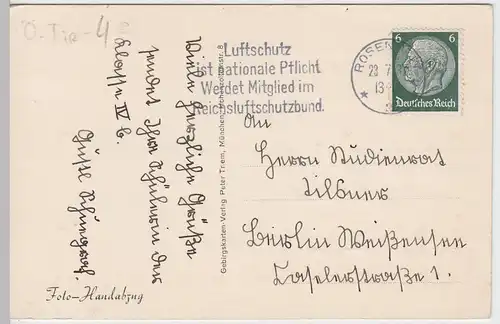 Ö. Tir - 4
Luftschutz
ist nationale Pflicht
Werdet Mitglied im
Reichsluftschutzbund.
ROSEN
13
6 6
Deutsches Reich
Viele herzliche Grüße
sendet Ihre Schülerin der
Klasse IV b.
Gebirgskarten-Verlag Peter Triem, München,
An
Herrn Studienrat
Tilsner
Berlin Weißensee
Caselerstraße 1.
Foto-Handabzug